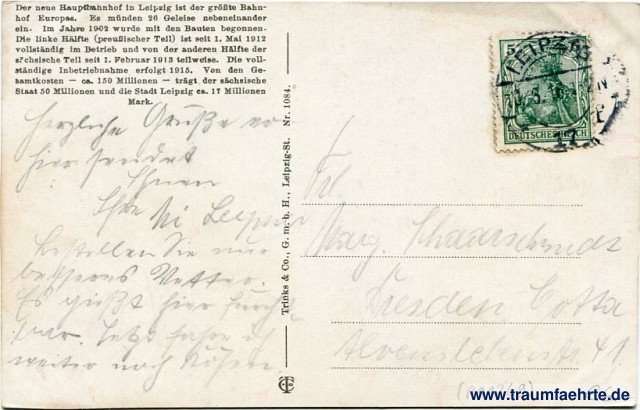 Der neue Hauptbahnhof in Leipzig ist der größte Bahn-
hof Europas. Es münden 26 Geleise nebeneinander
ein. Im Jahre 1902 wurde mit den Bauten begonnen.
Die linke Hälfte (preußischer Teil) ist seit 1. Mai 1912
vollständig im Betrieb und von der anderen Hälfte der
sächsische Teil seit 1. Februar 1913 teilweise. Die voll-
ständige Inbetriebnahme erfolgt 1915. Von den Ge-
samtkosten — ca. 150 Millionen — trägt der sächsische
Staat 50 Millionen und die Stadt Leipzig ca. 17 Millionen
Mark.
Herzliche Grüße von
hier sendet
Ihnen
Ihre
Bestellen Sie nur
besseres Wetter.
Es gießt hier furcht-
bar. Jetzt fahre ich
weiter nach Kösen.
Trinks & Co., G. m. b. H., Leipzig-St. Nr. 1084.
5
LEIPZIG
DEUTSCHES REICH
17
Frl.
Marg. Schaarschmidt
Dresden Cotta
Alvenslebenstr. 41
www.traumfaehrte.de